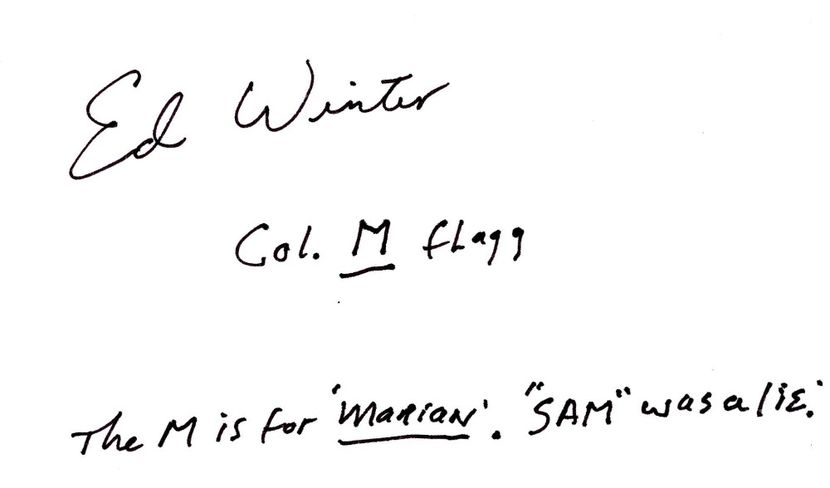 Ed Winter
Col. M Flagg
The M is for 'Marian'. "SAM" was a lie.